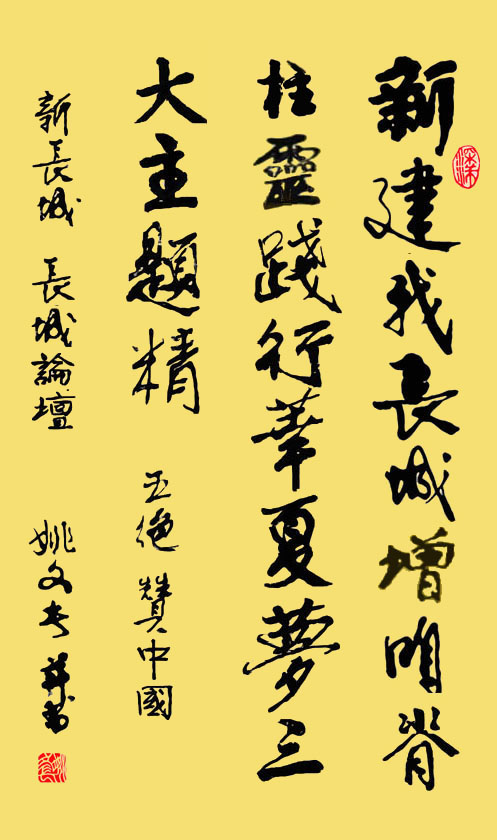 新建我長城增明脊
柱靈踐行華夏夢三
大主題精
五绝 贊中國
新長城 長城論壇
姚文长 并书